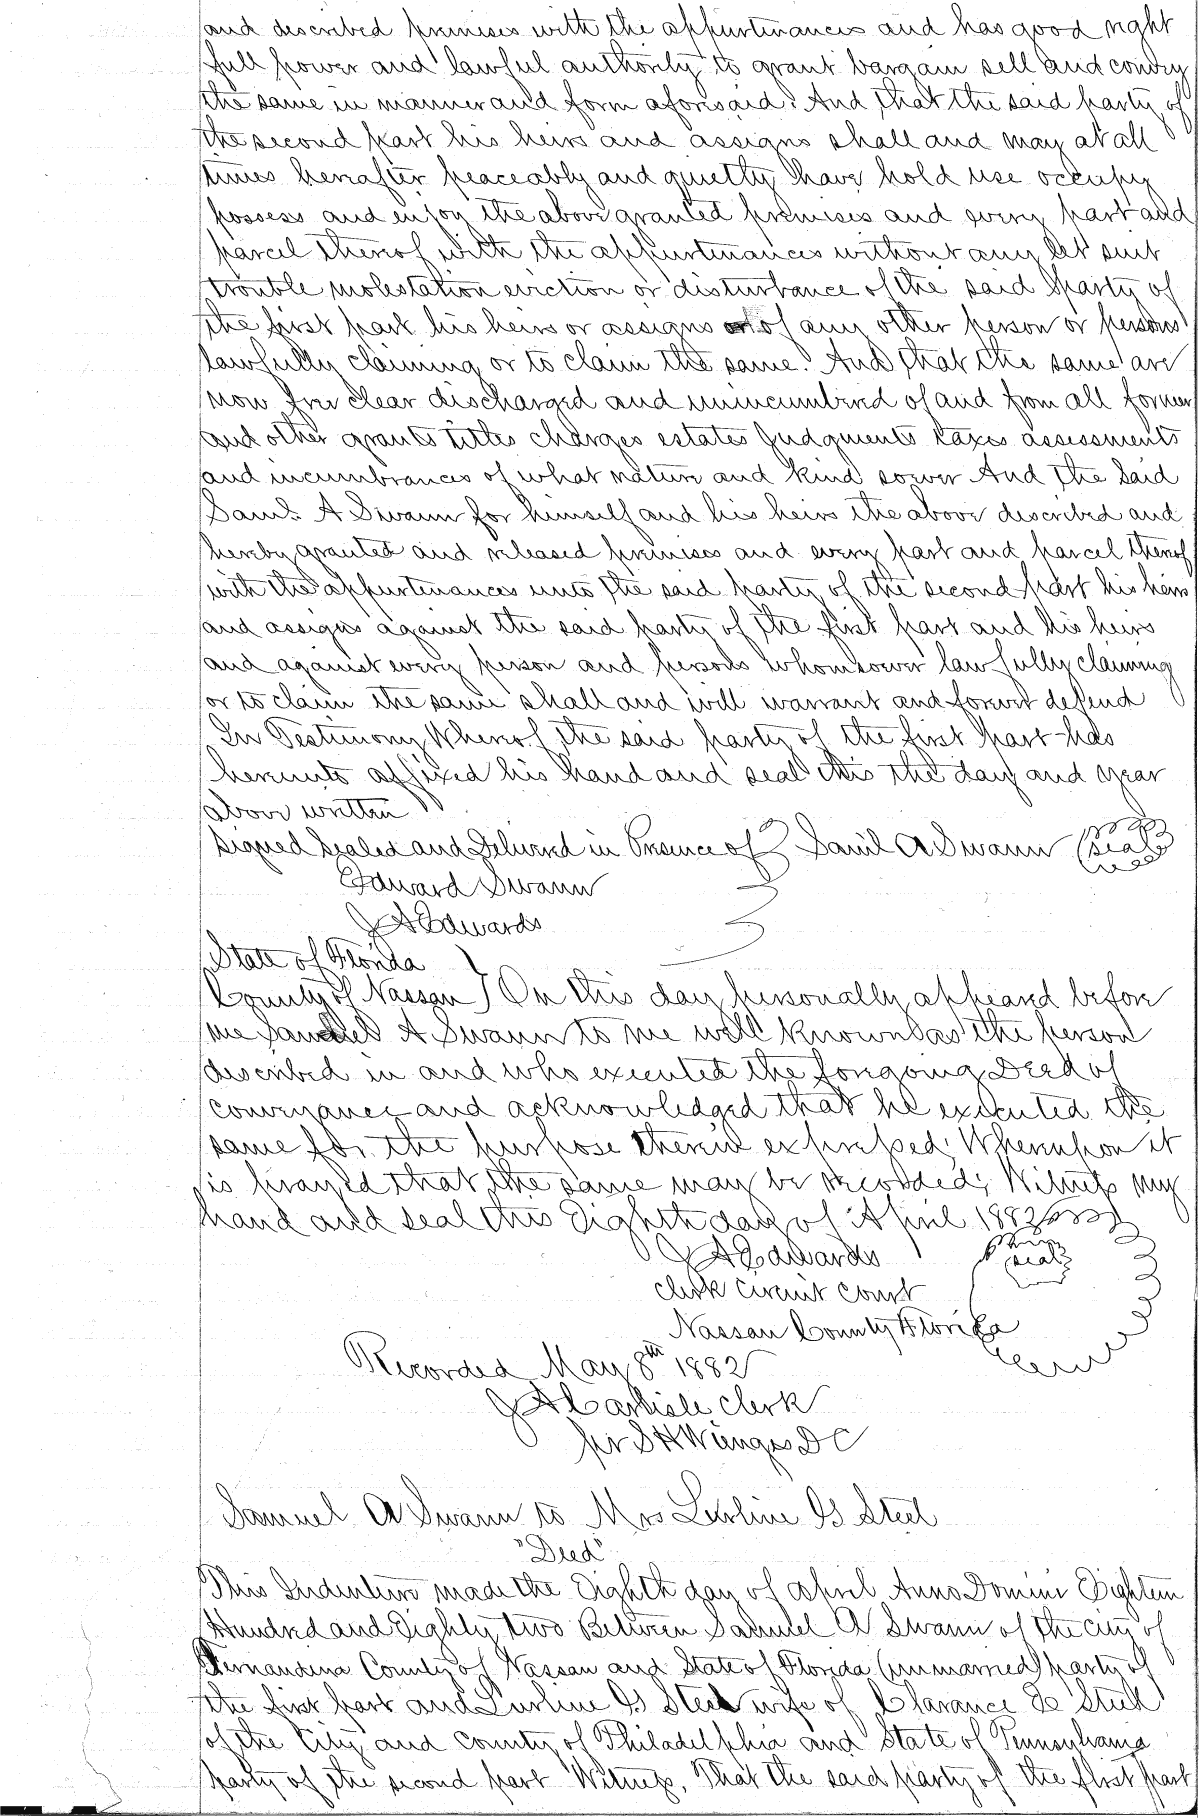 and described premises with the appurtenances and has good right
full power and lawful authority to grant bargain sell and convey
the same in manner and form aforesaid. And that the said party of
the second part his heirs and assigns shall and may at all
times hereafter peaceably and quietly have hold use occupy
possess and enjoy the above granted premises and every part and
parcel thereof with the appurtenances without any let suit
trouble molestation eviction or disturbance of the said party of
the first part his heirs or assigns or of any other person or persons
lawfully claiming or to claim the same. And that the same are
now free clear discharged and unincumbered of and from all former
and other grants titles charges estates Judgments taxes assessments
and incumbrances of what nature and kind soever And the Said
Saml. A Swann for himself and his heirs the above described and
hereby granted and released premises and every part and parcel thereof
with the appurtenances unto the said party of the second part his heirs
and assigns against the said party of the first part and his heirs
and against every person and persons whomsoever lawfully claiming
or to claim the same shall and will warrant and forever defend
In Testimony Whereof the said party of the first part has
hereunto affixed his hand and seal this the day and year
above written
Signed Sealed and Delivered in Presence of Saml A Swann (seal)
Edward Swann
J A Edwards
State of Florida
County of Nassau } On this day personally appeared before
me Samuel A Swann to me well known as the person
described in and who executed the foregoing Deed of
conveyance and acknowledged that he executed the
same for the purpose therein expressed; Whereupon it
is prayed that the same may be recorded; Witness my
hand and seal this Eighth day of April 1882
J A Edwards
seal
clerk circuit court
Nassau County Florida
Recorded May 8th 1882
J A Carlisle clerk
per S H Wienges D C
Samuel A Swann to Mrs Lurline B Steel
"Deed"
This Indenture made the Eighth day of April Anno Domini Eighteen
Hundred and Eighty two Between Samuel A Swann of the city of
Fernandina County of Nassau and State of Florida (unmarried) party of
the first part and Lurline B Steel wife of Clarance E Steel
of the City and County of Philadelphia and State of Pennsylvania
party of the second part Witness, That the said party of the first part